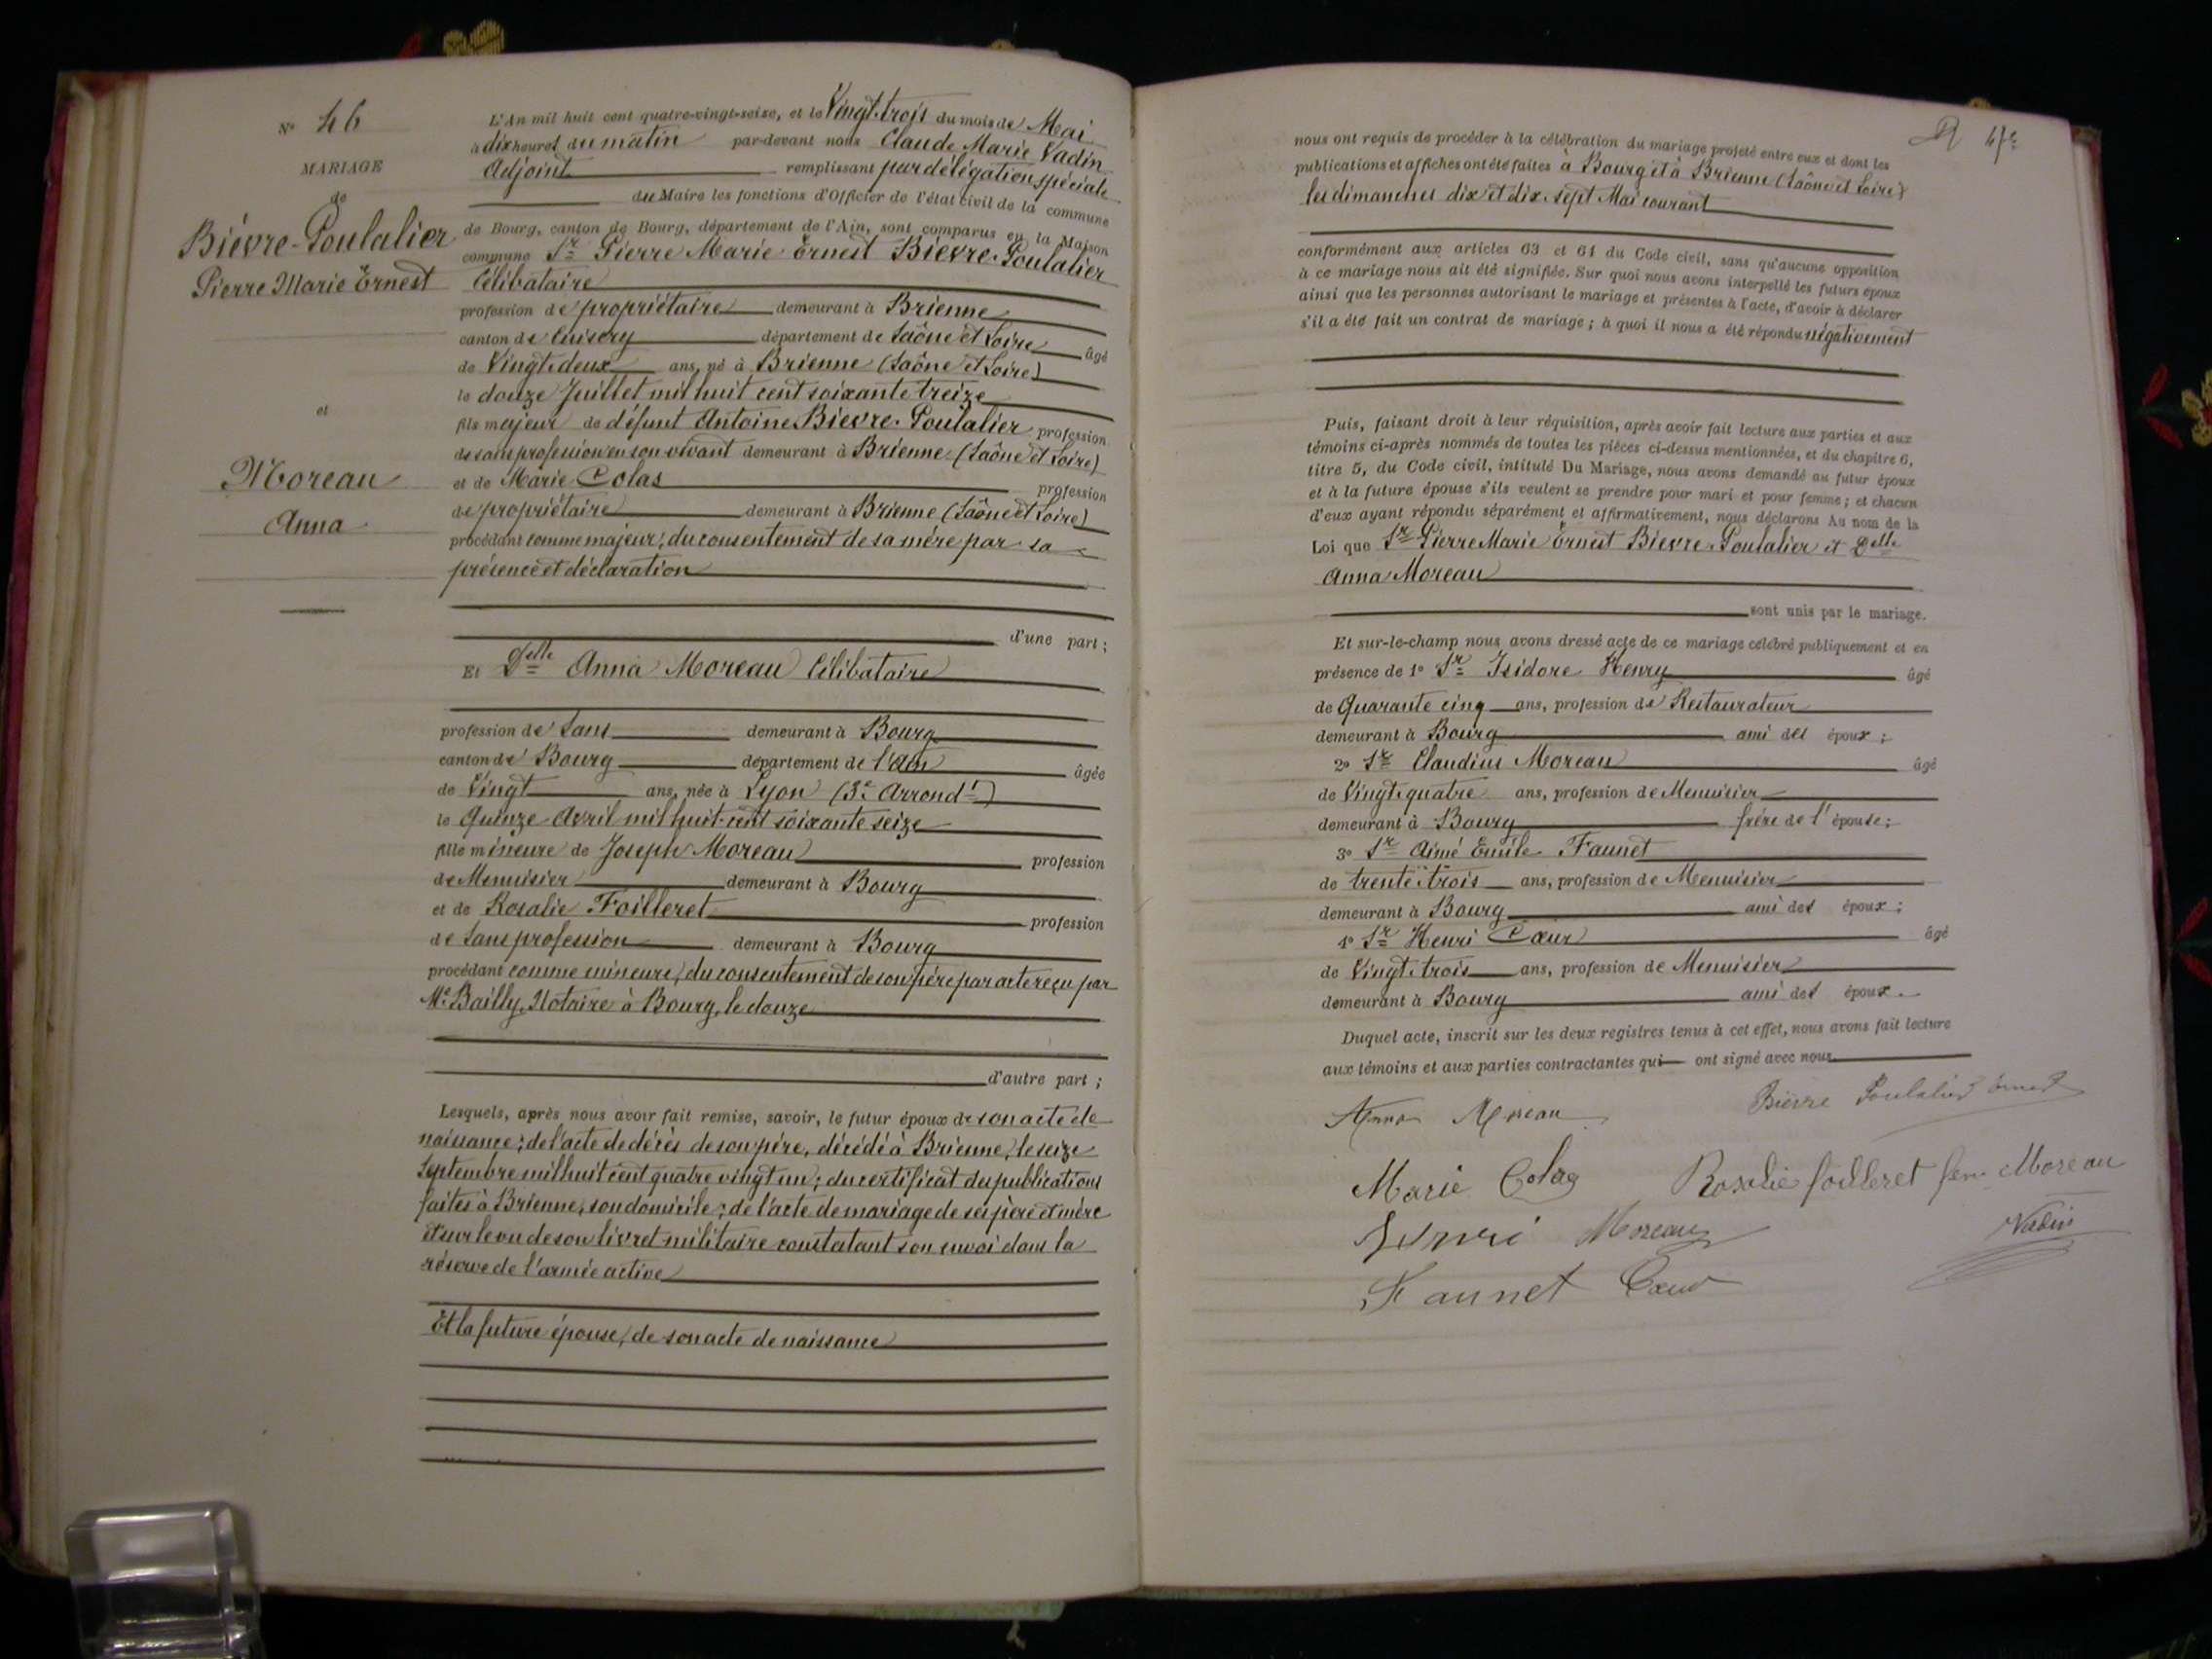 N° 46
MARIAGE
de
Bièvre-Poulalier
Pierre Marie Ernest
et
Moreau
Anna
L'An mil huit cent quatre-vingt-seize, et le Vingt-trois du mois de Mai
à dix heures du matin par-devant nous Claude Marie Vadin
Adjoint remplissant par délégation spéciale
du Maire les fonctions d'Officier de l'état civil de la commune
de Bourg, canton de Bourg, département de l'Ain, sont comparus en la Maison
commune Sr Pierre Marie Ernest Bièvre-Poulalier
Célibataire
profession de propriétaire demeurant à Brienne
canton de Cuisery département de Saône et Loire âgé
de Vingt-deux ans, né à Brienne (Saône et Loire)
le douze Juillet mil huit cent soixante treize
fils majeur de défunt Antoine Bievre-Poulalier profession
de sans profession en son vivant demeurant à Brienne (Saône et Loire)
et de Marie Colas profession
de propriétaire demeurant à Brienne (Saône et Loire)
procédant comme majeur, du consentement de sa mère par sa
présence et déclaration
d'une part ;
Et Delle Anna Moreau Célibataire
profession de Sans demeurant à Bourg
canton de Bourg département de l'Ain âgée
de Vingt ans, née à Lyon (3e Arrondt)
le Quinze Avril mil huit-cent soixante seize
fille mineure de Joseph Moreau profession
de Menuisier demeurant à Bourg
et de Rosalie Foilleret profession
de Sans profession demeurant à Bourg
procédant comme mineure, du consentement de son père par acte reçu par
Me Bailly, Notaire à Bourg, le douze
d'autre part ;
Lesquels, après nous avoir fait remise, savoir, le futur époux de son acte de
naissance ; de l'acte de décès de son père, décédé à Brienne, le seize
Septembre mil huit cent quatre vingt un ; du certificat des publications
faites à Brienne, son domicile ; de l'acte de mariage de ses père et mère
et sur le vu de son livret militaire constatant son envoi dans la
réserve de l'armée active
Et la future épouse, de son acte de naissance
nous ont requis de procéder à la célébration du mariage projeté entre eux et dont les
publications et affiches ont été faites à Bourg et à Brienne (Saône et Loire)
les dimanches dix et dix-sept Mai courant
conformément aux articles 63 et 64 du Code civil, sans qu'aucune opposition
à ce mariage nous ait été signifiée. Sur quoi nous avons interpellé les futurs époux
ainsi que les personnes autorisant le mariage et présentes à l'acte, d'avoir à déclarer
s'il a été fait un contrat de mariage ; à quoi il nous a été répondu négativement
Puis, faisant droit à leur réquisition, après avoir fait lecture aux parties et aux
témoins ci-après nommés de toutes les pièces ci-dessus mentionnées, et du chapitre 6,
titre 5, du Code civil, intitulé Du Mariage, nous avons demandé au futur époux
et à la future épouse s'ils veulent se prendre pour mari et pour femme ; et chacun
d'eux ayant répondu séparément et affirmativement, nous déclarons Au nom de la
Loi que Sr Pierre Marie Ernest Bievre-Poulalier et Delle
Anna Moreau
sont unis par le mariage.
Et sur-le-champ nous avons dressé acte de ce mariage célébré publiquement et en
présence de 1° Sr Isidore Henry âgé
de Quarante cinq ans, profession de Restaurateur
demeurant à Bourg ami des époux ;
2° Sr Claudius Moreau âgé
de Vingt-quatre ans, profession de Menuisier
demeurant à Bourg frère de l'épouse ;
3° Sr Aimé Emile Faunet
de trente-trois ans, profession de Menuisier
demeurant à Bourg ami des époux ;
4° Sr Henri Cœur âgé
de Vingt-trois ans, profession de Menuisier
demeurant à Bourg ami des époux.
Duquel acte, inscrit sur les deux registres tenus à cet effet, nous avons fait lecture
aux témoins et aux parties contractantes qui ont signé avec nous.
Anna Moreau Bièvre Poulalier Ernest
Marie Colas Rosalie foilleret fem Moreau
Henri Moreau Vadin
Faunet Cœur